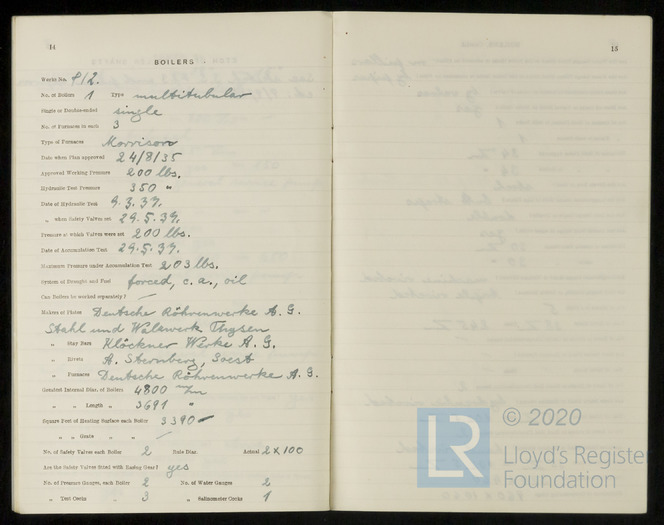 14
BOILERS.
Works No. 912.
No. of Boilers 1 Type multitubular
Single or Double-ended single
No. of Furnaces in each 3
Type of Furnaces Morrison
Date when Plan approved 24/8/35
Approved Working Pressure 200 lbs.
Hydraulic Test Pressure 350 "
Date of Hydraulic Test 9.3.37.
" when Safety Valves set 29.5.37.
Pressure at which Valves were set 200 lbs.
Date of Accumulation Test 29.5.37.
Maximum Pressure under Accumulation Test 203 lbs.
System of Draught and Fuel forced, c. a., oil
Can Boilers be worked separately? —
Makers of Plates Deutsche Röhrenwerke A. G.
Stahl und Walzwerk Thyssen
" Stay Bars Klöckner Werke A. G.
" Rivets A. Sternberg, Soest
" Furnaces Deutsche Röhrenwerke A. G.
Greatest Internal Diar. of Boilers 4800 m/m
" " Length " 3691 "
Square Feet of Heating Surface each Boiler 3390
" " Grate " " —
No. of Safety Valves each Boiler 2 Rule Diar. Actual 2 x 100
Are the Safety Valves fitted with Easing Gear? yes
No. of Pressure Gauges, each Boiler 2 No. of Water Gauges 2
" Test Cocks " 3 " Salinometer Cocks 1
15
© 2020
LR
Lloyd's Register
Foundation